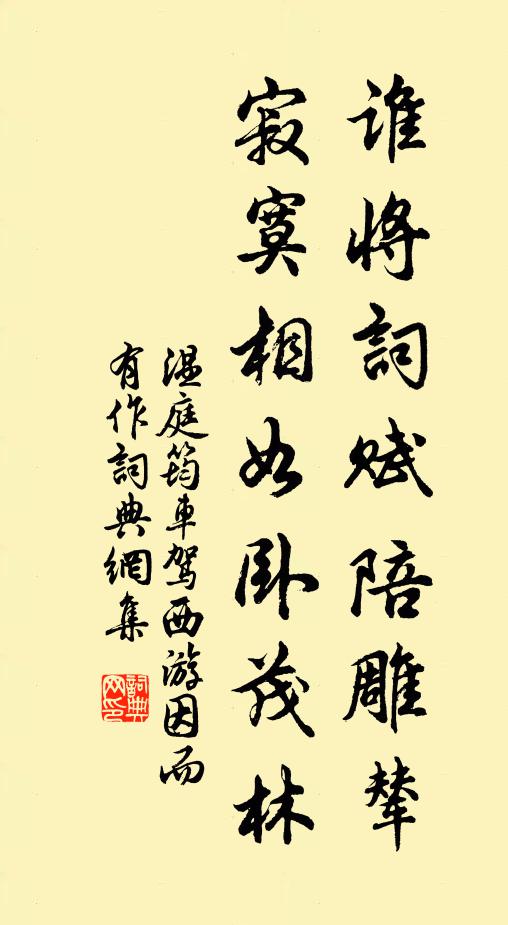 谁將詞赋陪雕輦
寂寞相如卧茂林
温庭筠車駕西游因而
有作詞典網集
詞典网印